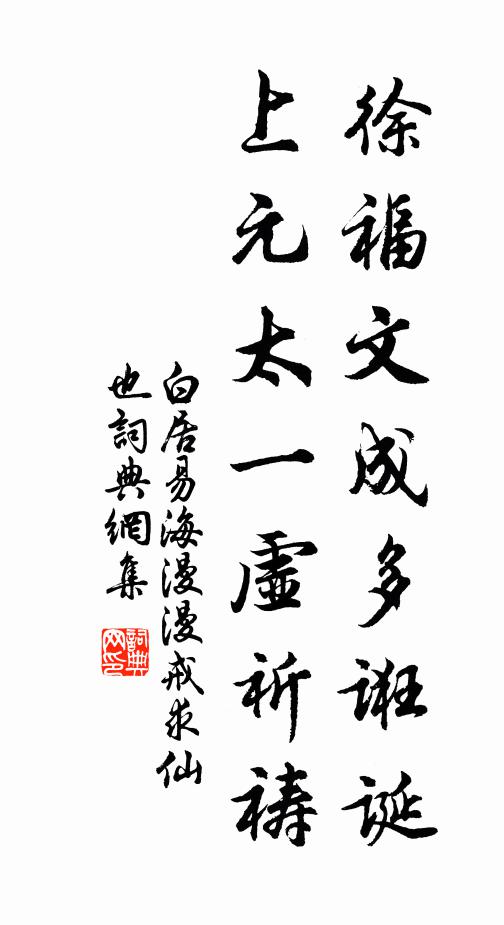 徐福文成多誑誕
上元太一虛祈禱
白居易海漫漫戒求仙
也詞典網集
詞典网印